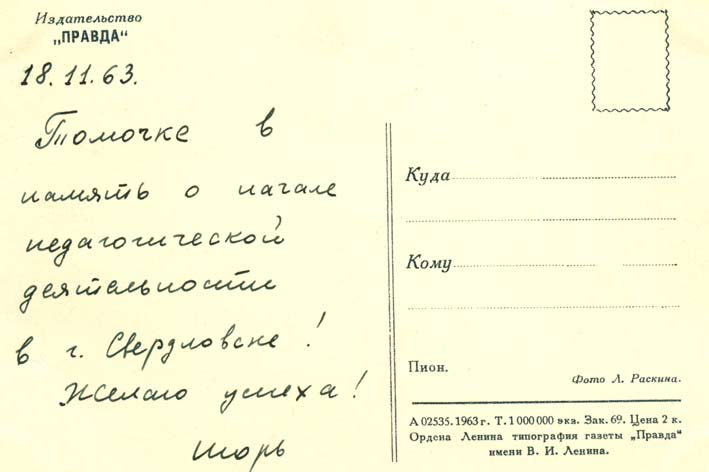 Издательство
„ПРАВДА“
18.11.63.
Томочке в
память о начале
педагогической
деятельности
в г. Свердловске!
Желаю успеха!
Игорь
Куда
Кому
Пион.
Фото Л. Раскина.
А 02535. 1963 г. Т. 1 000 000 экз. Зак. 69. Цена 2 к.
Ордена Ленина типография газеты „Правда“
имени В. И. Ленина.